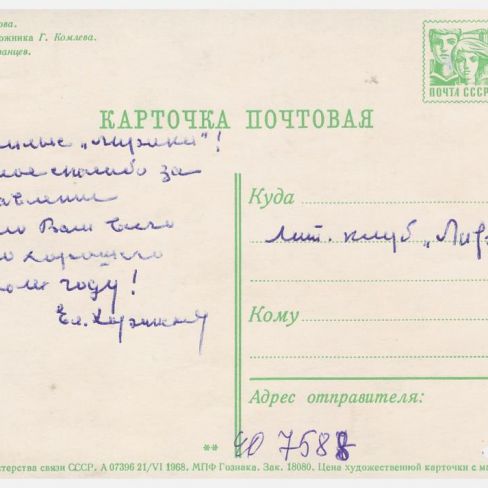 ова.
ожника Г. Комлева.
ванцев.
ПОЧТА СССР
КАРТОЧКА ПОЧТОВАЯ
илые „Лирики"!
ное спасибо за
авление
ю Вам всего
о хорошего
ом году!
Куда
Лит. клуб „Лир
Кому
Адрес отправителя:
** 40 7588
терства связи СССР. А 07396 21/VI 1968. МПФ Гознака. Зак. 18080. Цена художественной карточки с ма